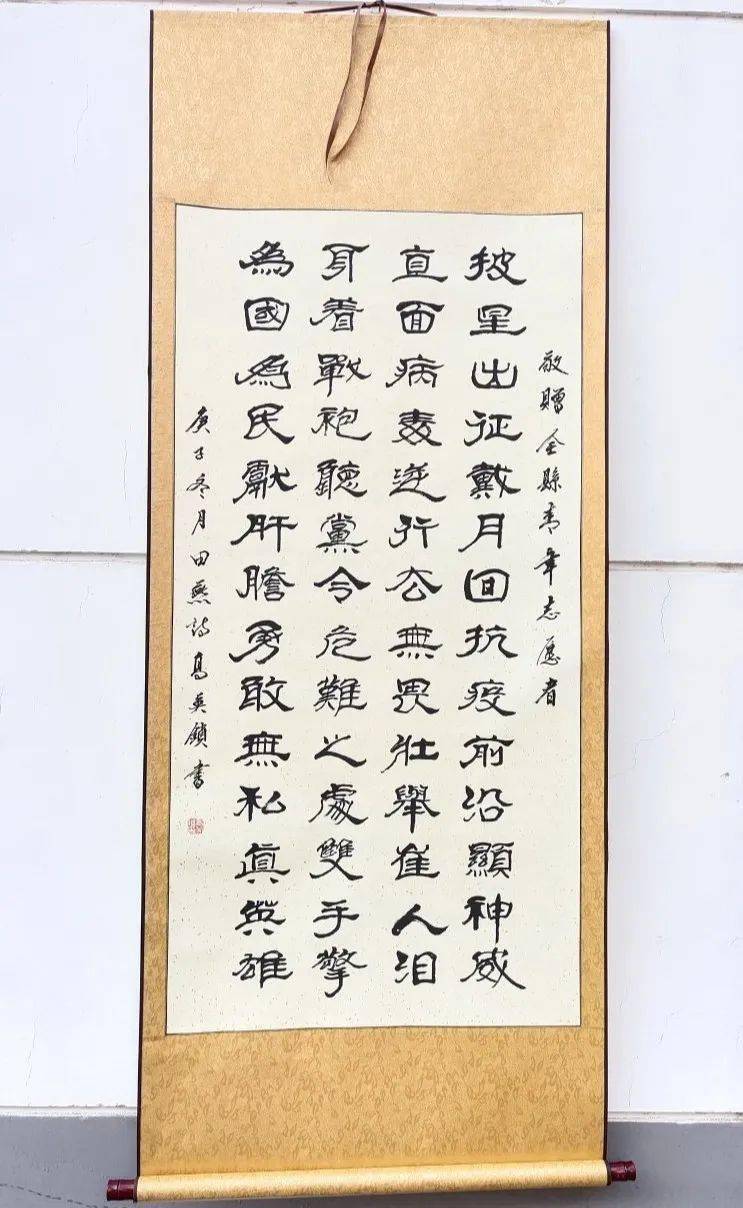 敬贈全縣青年志愿者
披星出征戴月回抗疫前沿顯神威
直面病毒逆行去無畏壯舉崔人泪
耳着戰袍聽黨令危難之處雙手擎
為國為民獻肝膽勇敢無私真英雄
庚子冬月田燕詩高英鎖書